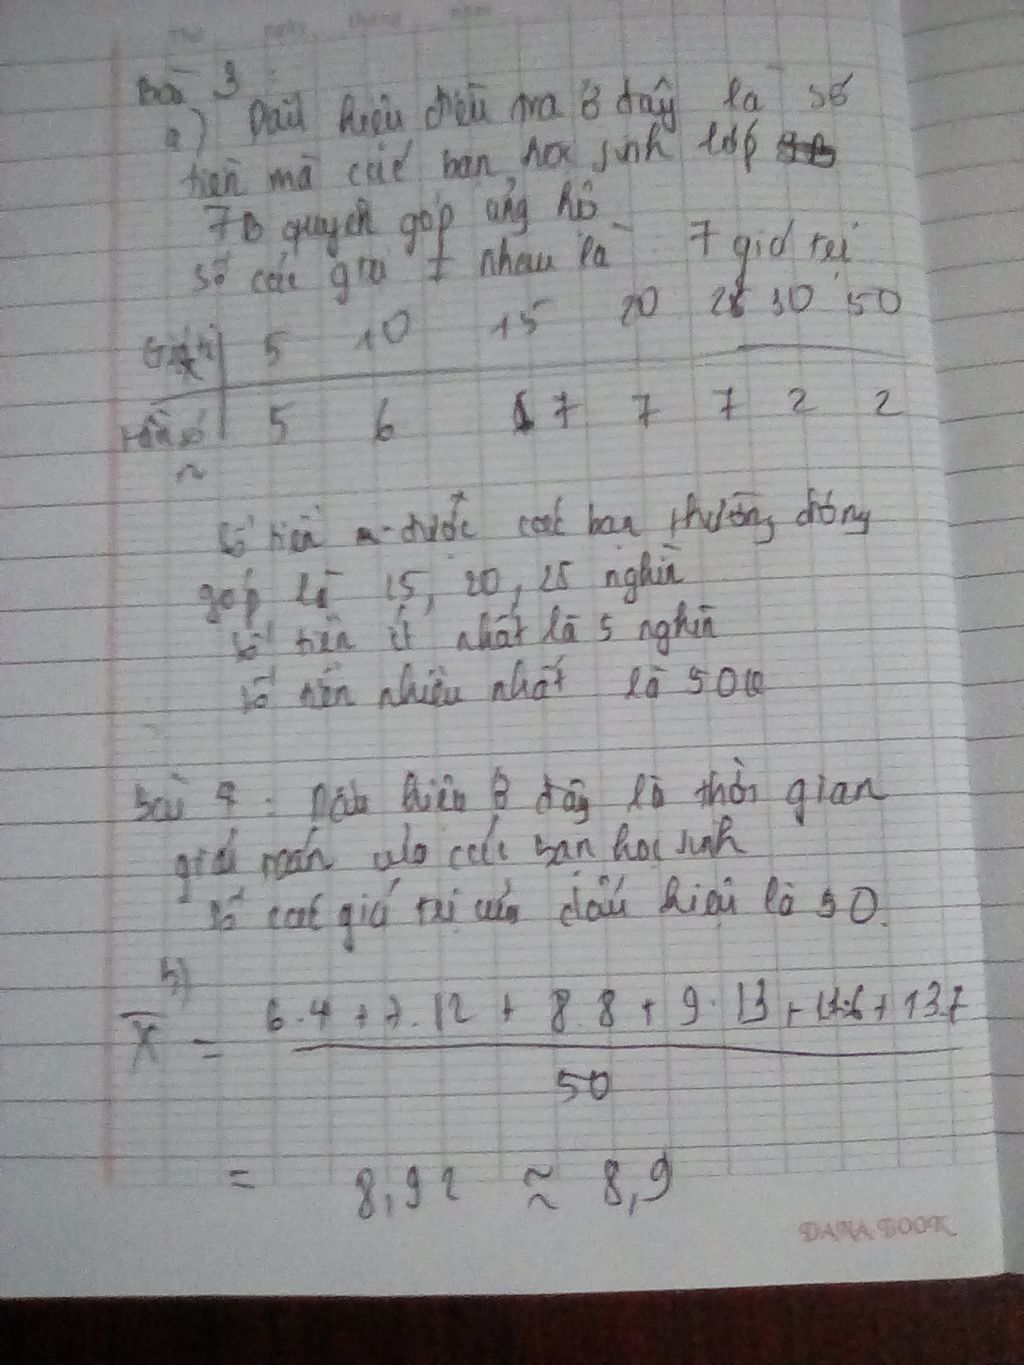 Thứ ngày tháng năm
Bài 3
a) Dấu hiệu điều tra ở đây là số
tiền mà các bạn học sinh lớp
7B quyên góp ủng hộ
số các giá trị ≠ nhau là 7 giá trị
Giá trị 5 10 15 20 25 30 50
Tần số 5 6 7 7 7 2 2
số tiền được các bạn thường đóng
góp là 15, 20, 25 nghìn
số tiền ít nhất là 5 nghìn
số tiền nhiều nhất là 50
Bài 4 : Dấu hiệu ở đây là thời gian
giải toán của các bạn học sinh
số các giá trị của dấu hiệu là 50.
b)
X̄ = 6.4 + 7.12 + 8.8 + 9.13 + 11.6 + 13.7
50
= 8,92 ≈ 8,9
DANA BOOK